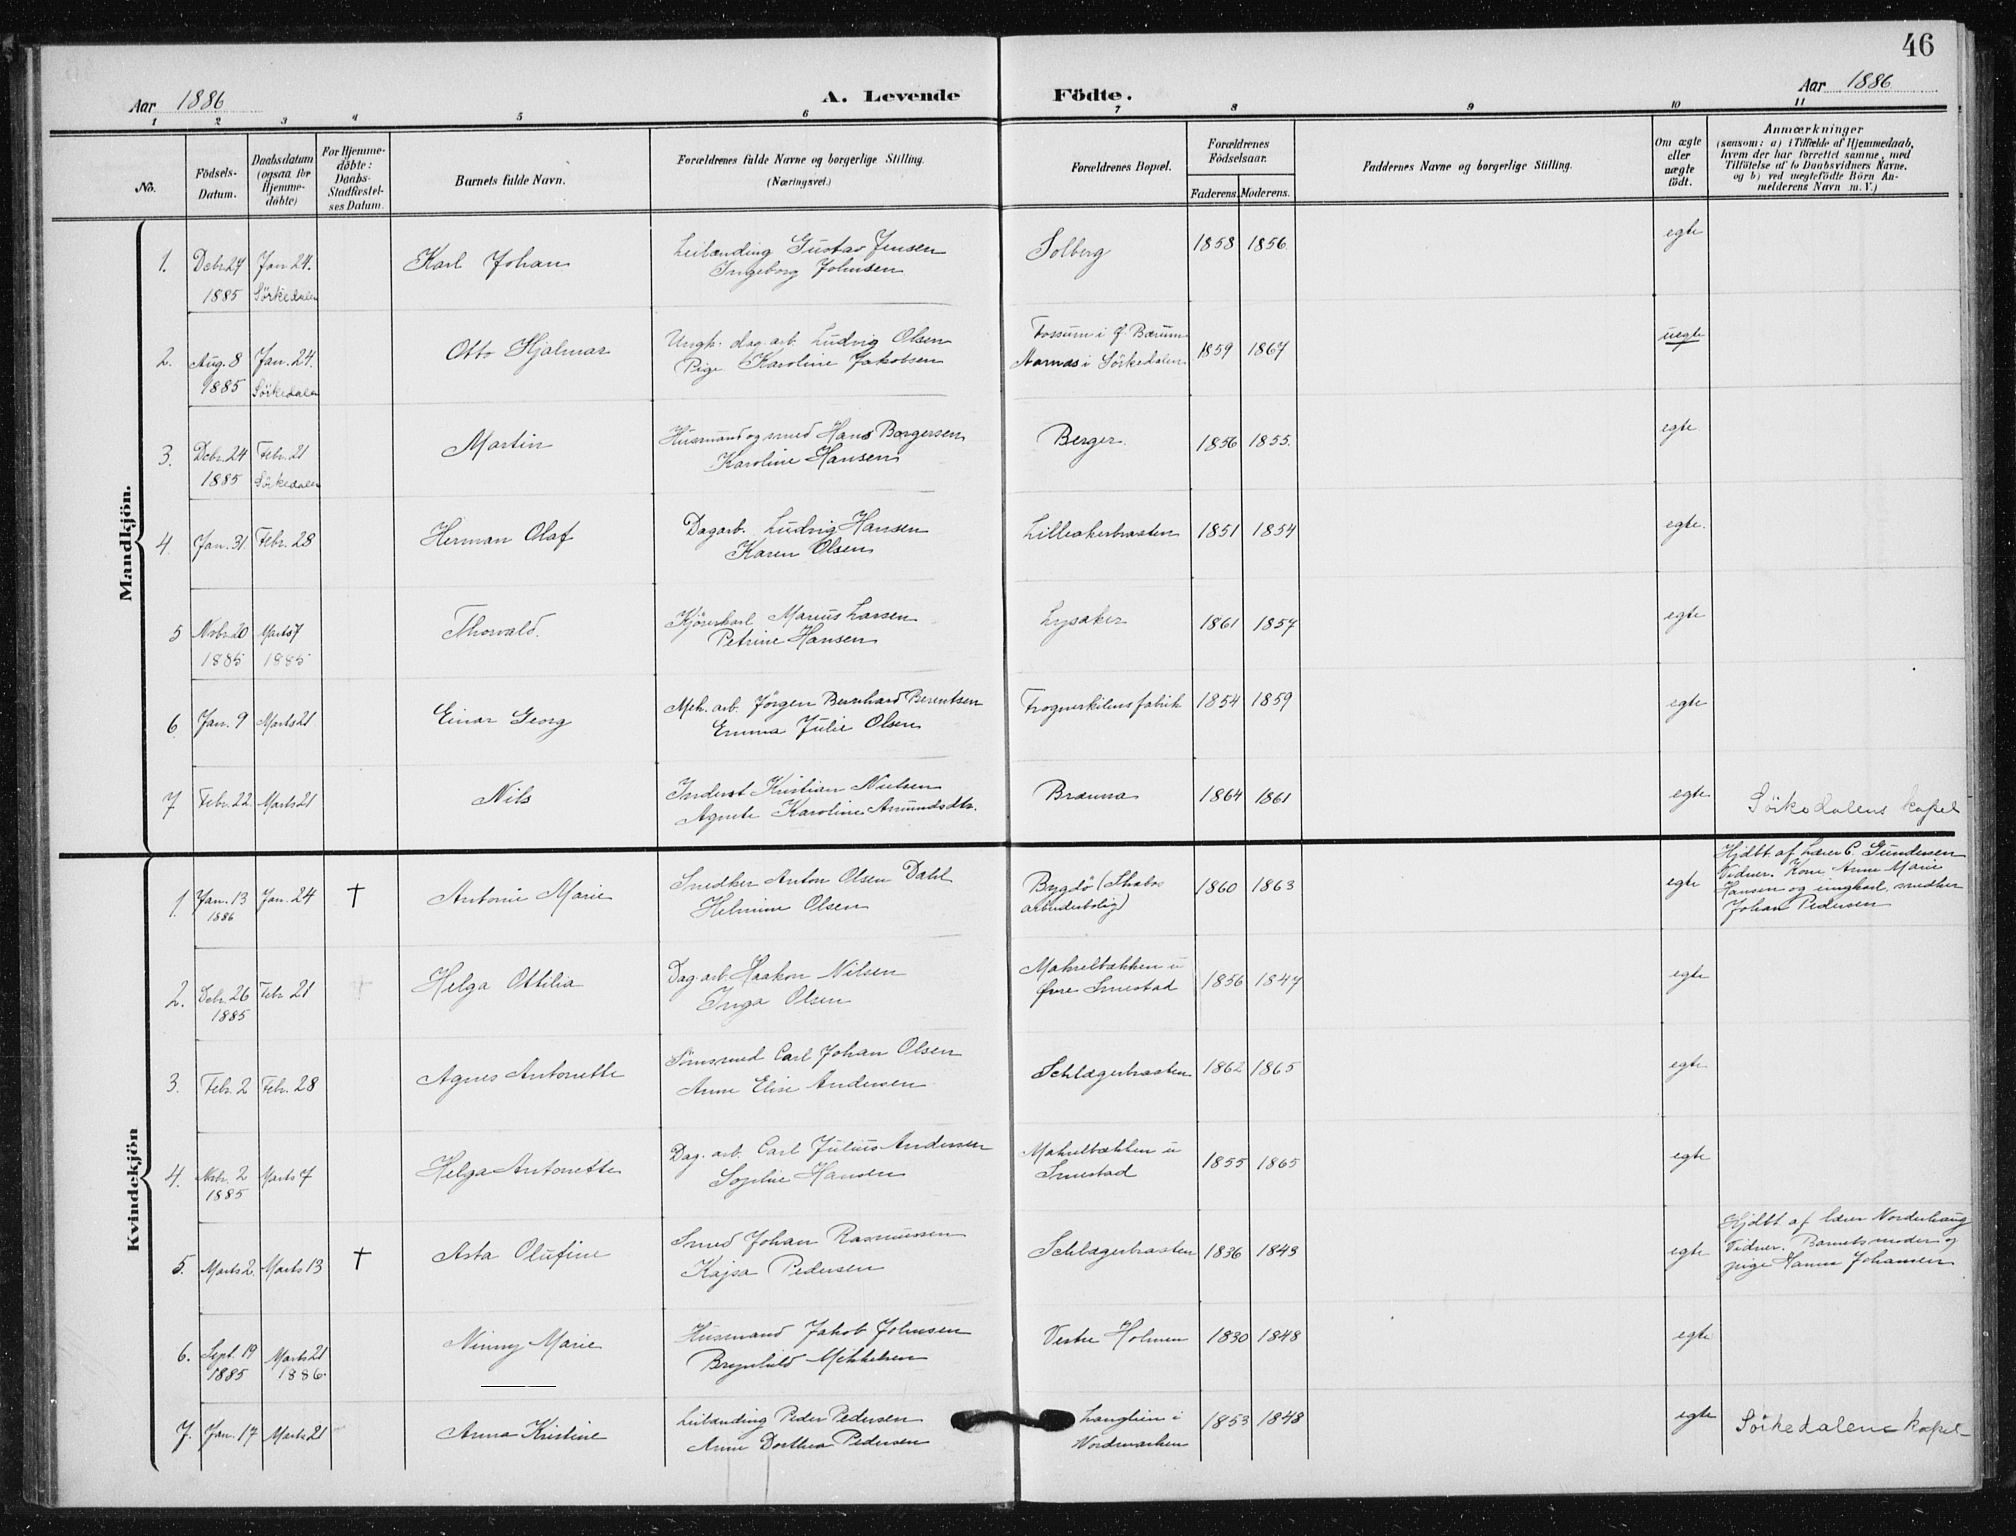 46
Aar 1886 A. Levende Födte. Aar 1886
1 2 3 4 5 6 7 8 9 10 11
No.
Födsels-Datum.
Daabsdatum (ogsaa for Hjemme-döbte)
For Hjemme-döbte: Daabs-Stadfæstel-ses Datum.
Barnets fulde Navn.
Forældrenes fulde Navne og borgerlige Stilling.
(Næringsvei.)
Forældrenes Bopæl.
Forældrenes Födselsaar.
Faderens. Moderens.
Faddernes Navne og borgerlige Stilling.
Om ægte eller uægte födt.
Anmærkninger
(saasom: a) i Tilfælde af Hjemmedaab,
hvem der har forrettet samme, med
Tilföielse af to Daabsvidners Navne.
og b) ved uægtefödte Börn An-
melderens Navn m. V.)
Mandkjön.
1. Debr 27 Jan 24. Karl Johan Leilænding Gustav Jensen Solberg 1858 1856 egte
1885 Sörkedalen Ingeborg Johnsen
2. Aug. 8 Jan. 24. Otto Hjalmar Ungk. dag. arb. Ludvig Olsen Fossum i Ø. Bærum 1859 1867 uegte
1885 Sörkedalen Pige Karoline Jakobsen Aamas i Sörkedalen
3. Debr. 24 Febr. 21 Martin Husmand og smed Hans Borgersen Berger. 1856 1855. egte
1885 Sörkedalen Karoline Hansen
4. Jan. 31 Febr. 28 Herman Olaf Dagarb. Ludvig Hansen Lilleakerbraaten 1851 1854 egte.
Karen Olsen
5 Novbr. 20 Marts 7 Thorvald. Kjörerkarl Marius Larsen Lysaker 1861 1857 egte
1885 1885 Petrine Hansen
6 Jan. 9 Marts 21 Einar Georg Mek. arb. Jörgen Bernhard Berentsen Frognerkilens fabrik 1854 1859 egte
Emma Julie Olsen
7 Febr. 22. Marts 21 Nils Inderst Kristian Nielsen Brænna 1864 1861 egte Sörkedalens kapel
Agnete Karoline Amundsdtr.
Kvindekjön
1. Jan. 13 Jan. 24 † Antonie Marie Snedker Anton Olsen Dahl Bygdö (Skabos 1860 1863 egte Hjdbt af Lærer C. Gundersen
1886 Helmine Olsen arbeiderbolig) Vidner. Kone Anne Marie
Hansen og ungkarl, snedker
Johan Pedersen
2. Debr. 26 Febr 21 Helga Ottilia Dag. arb. Haakon Nilsen Makrelbækken u 1856 1847 egte
1885 Inga Olsen Øvre Smestad
3. Febr. 2 Febr. 28 Agnes Antonette Sömsmed Carl Johan Olsen Schlægerbraaten 1862 1865 egte
Anne Elise Andersen
4. Nvbr. 2 Marts 7 Helga Antonette Dag. arb. Carl Julius Andersen Makrelbækken u 1855 1865 egte
1885 Sophie Hansen Smestad
5. Marts 2. Marts 13 † Asta Olufine Smed Johan Rasmussen Schlægerbraaten 1836 1843 egte Hjdbt af lærer Norderhaug
Kajsa Pedersen Vidner. Barnets moder og
pige Hanna Johansen
6. Sept. 19 Marts 21 Ninny Marie Husmand Jakob Johnsen Vestre Holmen 1830 1848 egte
1885 1886. Brynhild Mikkelsen
7. Jan. 17 Marts 21 Anna Kristine Leilænding Peder Pedersen Langlien i 1853 1848 egte Sörkedalens kapel
Anne Dorthea Pedersen Nordmarken